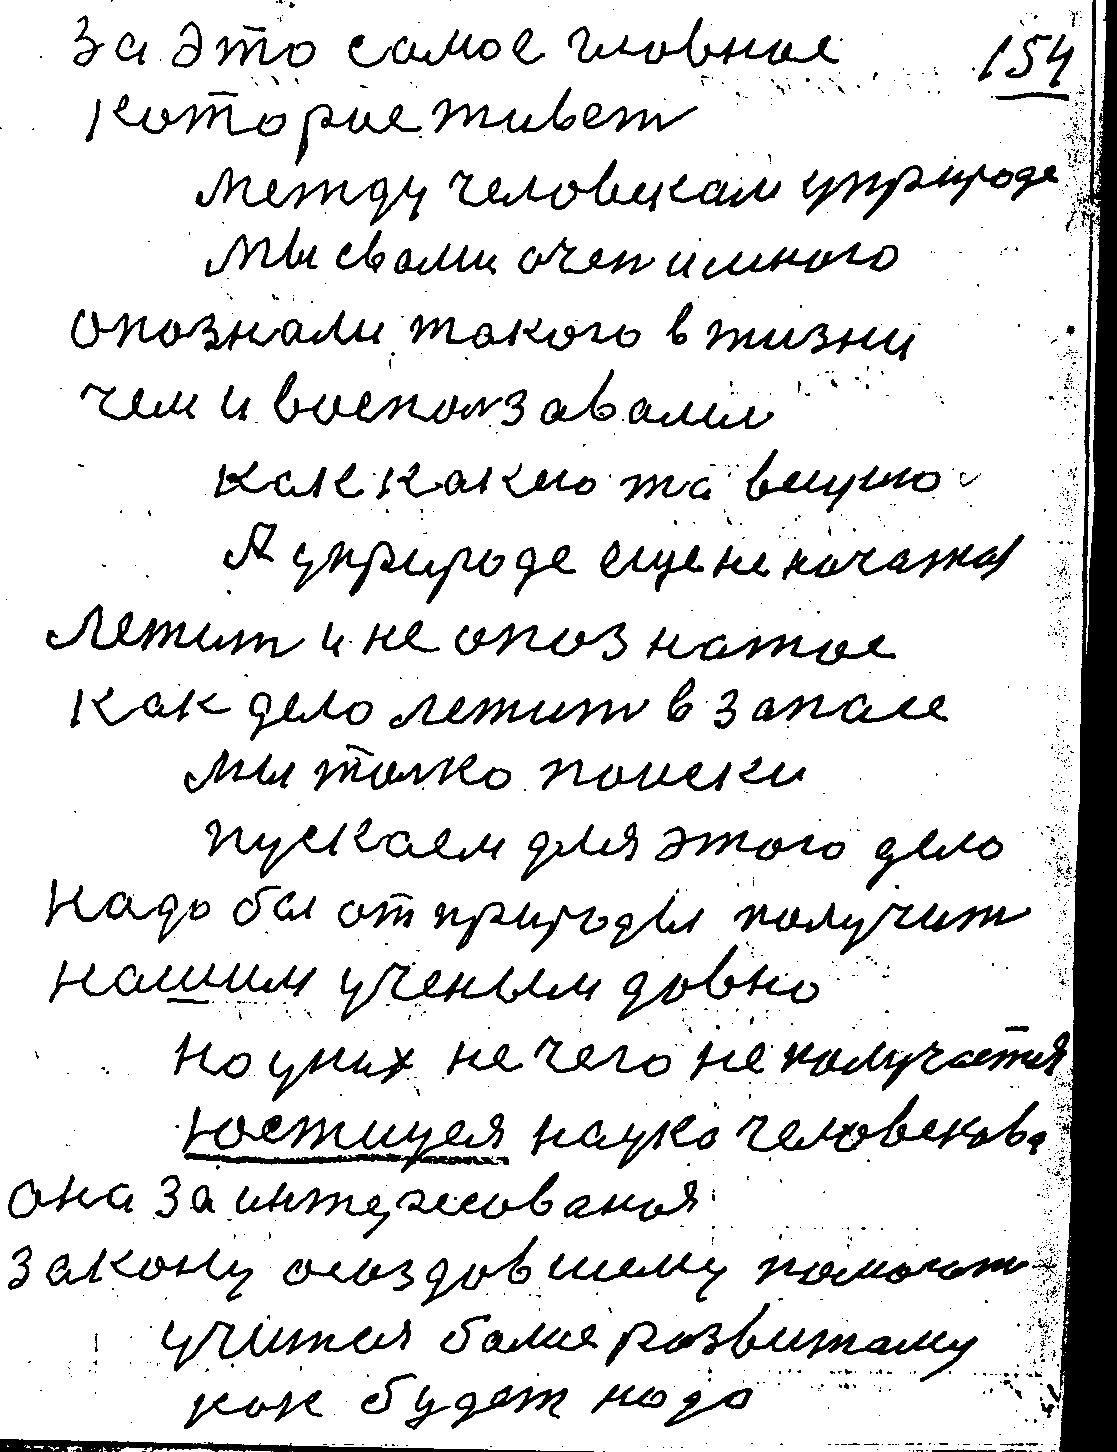 за это самое главное 154
которое живет
между человекам уприроде
мы свами очен имного
опознали такого в жизни
чем и воспользавались
как какою та вещую
А уприроде еще не начатая
лежит и не опознатое
как дело лежит в запасе
мы толко поиски
пускаем для этого дело
надо бы от природы получит
нашим ученым довно
но уних не чего не получается
юстицея наука человекова
она за интересованая
закону создовшему помогат
учится более розвитаму
как будет надо